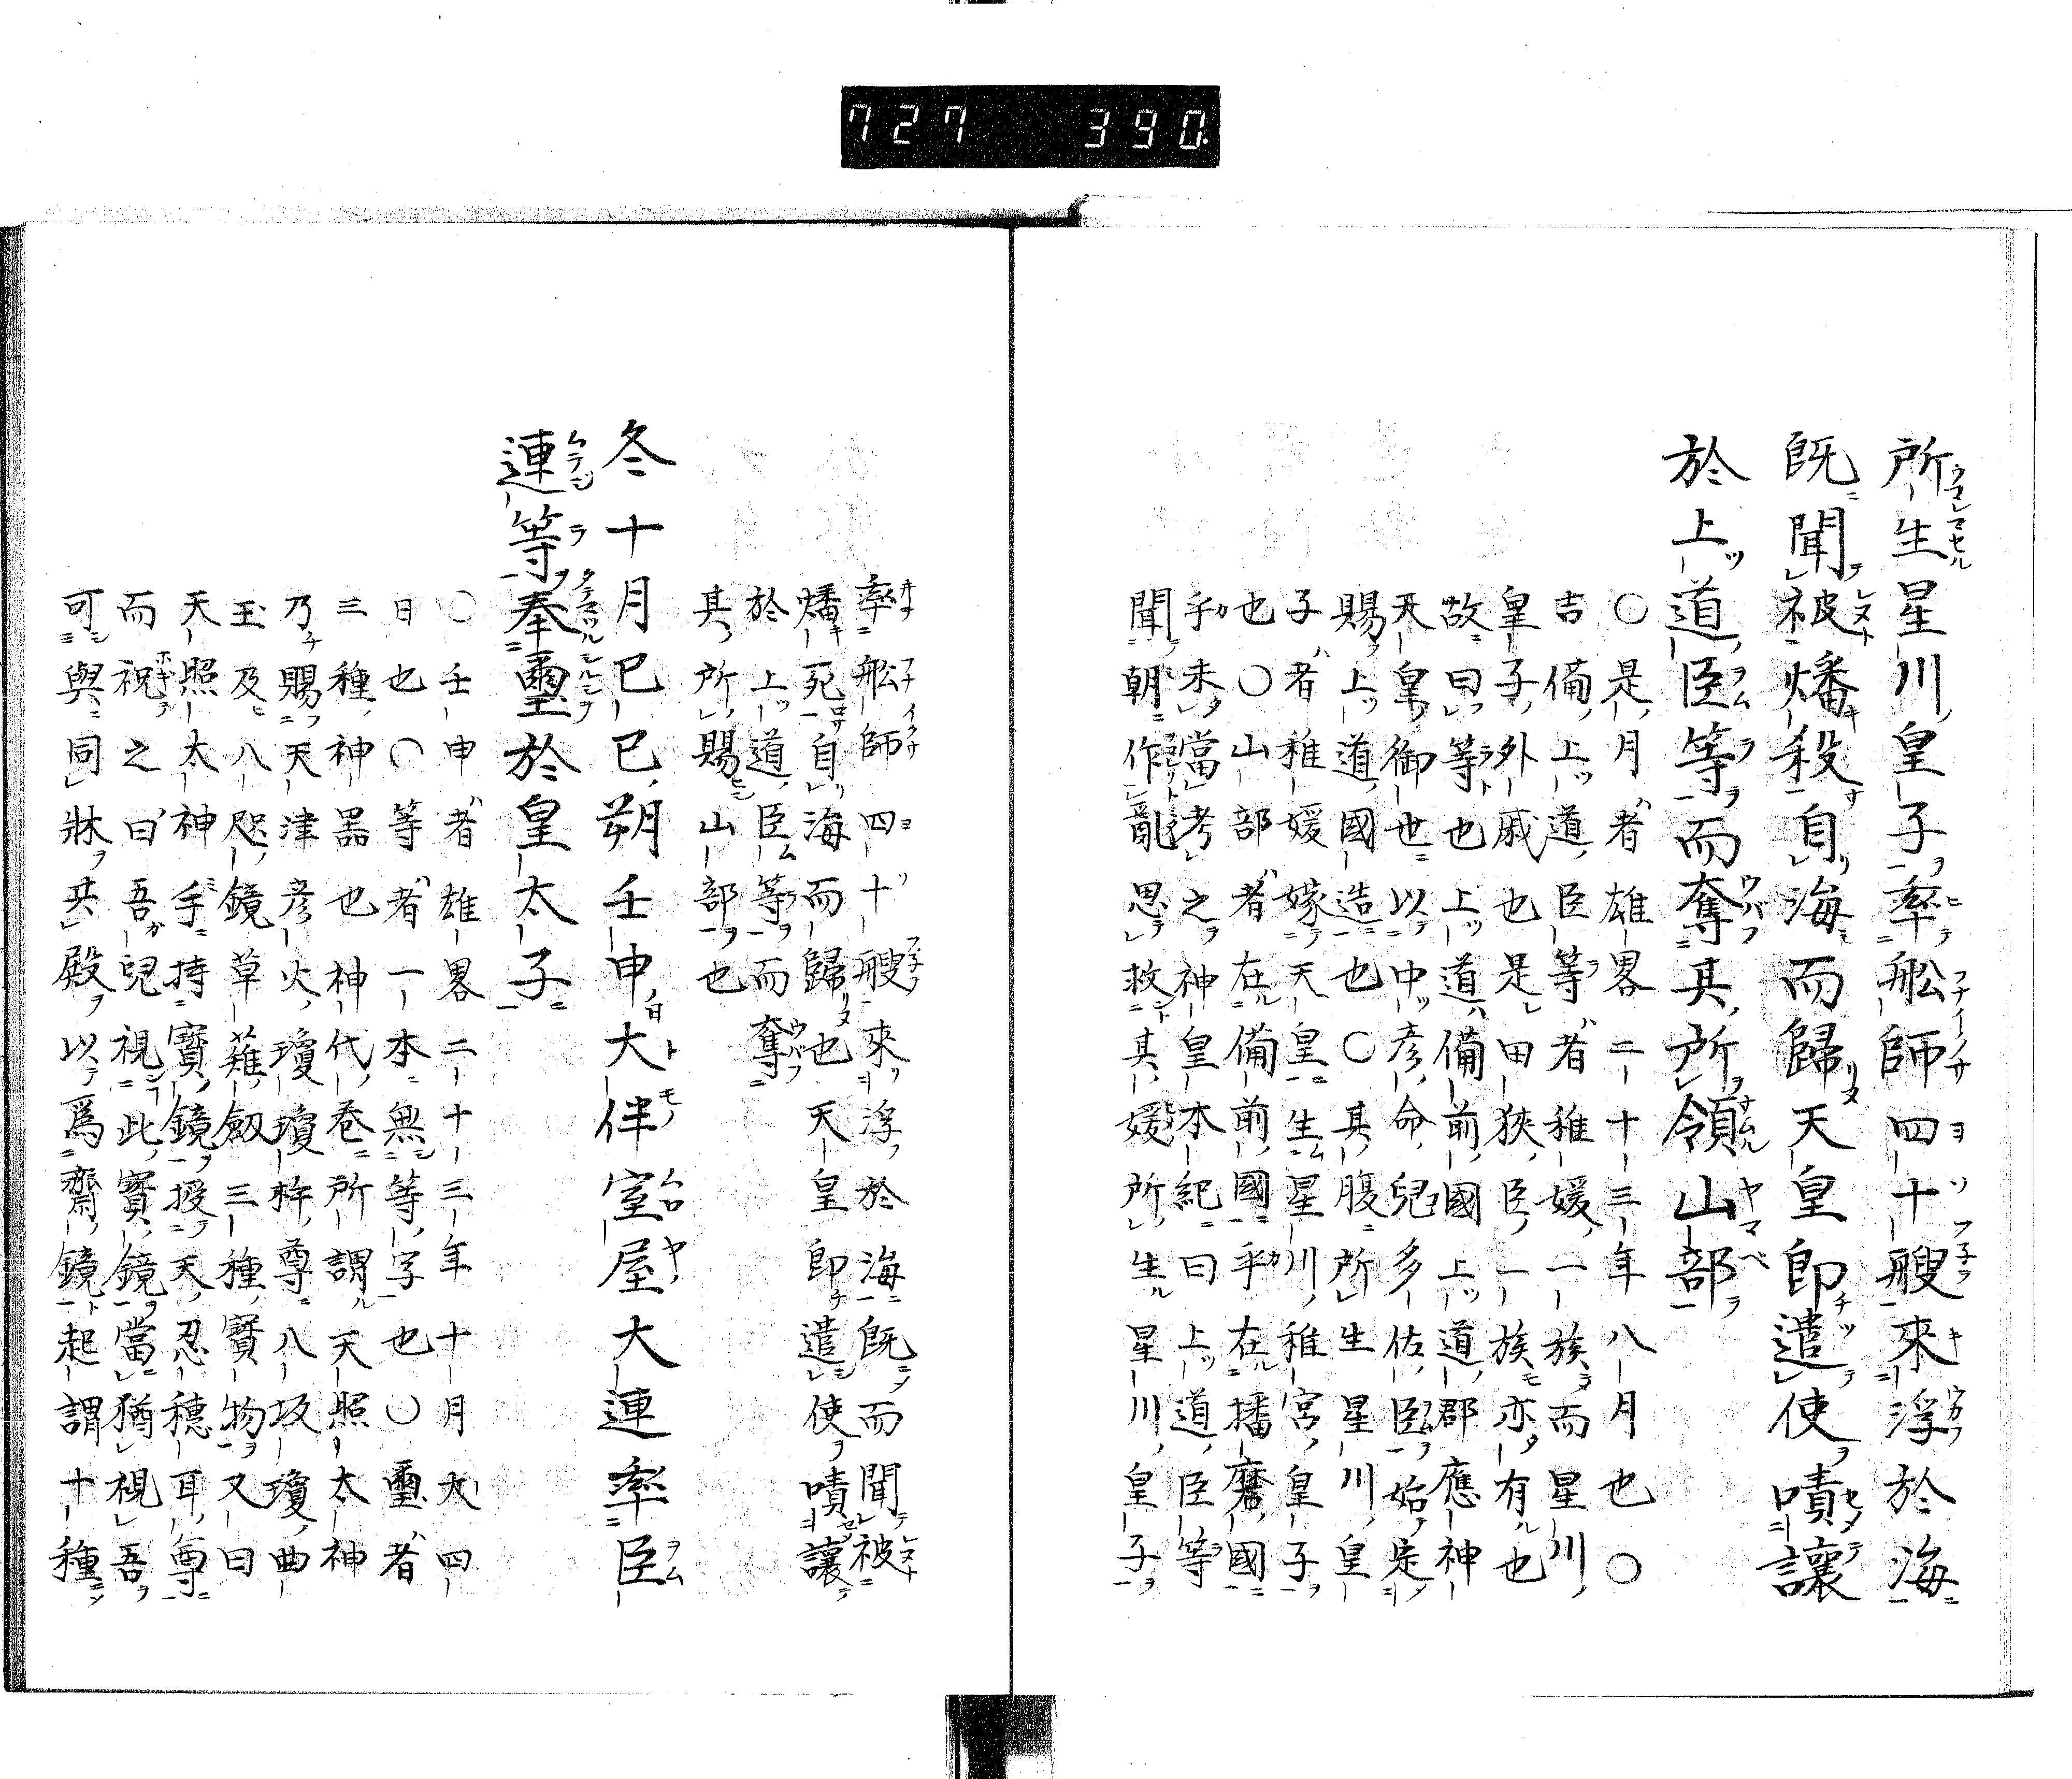 727 390
所生星川皇子率舩師四十艘來浮於海
既聞被燔殺自海而歸天皇即遣使嘖讓
於上道臣等而奪其所領山部
〇是月者雄畧二十三年八月也〇
吉備上道臣等者稚媛一族而星川
皇子外戚也是田狹臣一族亦有也
故曰等也上道備前國上道郡應神
天皇御世以中彦命兒多佐臣始定
賜上道國造也〇其腹所生星川皇
子者稚媛嫁天皇生星川稚宮皇子
也〇山部者在備前國乎在播磨國
乎未當考之神皇本紀曰上道臣等
聞朝作亂思救其媛所生星川皇子
率舩師四十艘來浮於海既而聞被
燔死自海而歸也天皇即遣使嘖讓
於上道臣等而奪
其所賜山部也
冬十月己巳朔壬申大伴室屋大連率臣
連等奉璽於皇太子
〇壬申者雄畧二十三年十月大四
日也〇等者一本無等字也〇璽者
三種神噐也神代卷所謂天照太神
乃賜天津彦火瓊瓊杵尊八坂瓊曲
玉及八咫鏡草薙劔三種寶物又曰
天照太神手持寶鏡授天忍穗耳尊
而祝之曰吾兒視此寶鏡當猶視吾
可與同牀共殿以爲齋鏡起謂十種